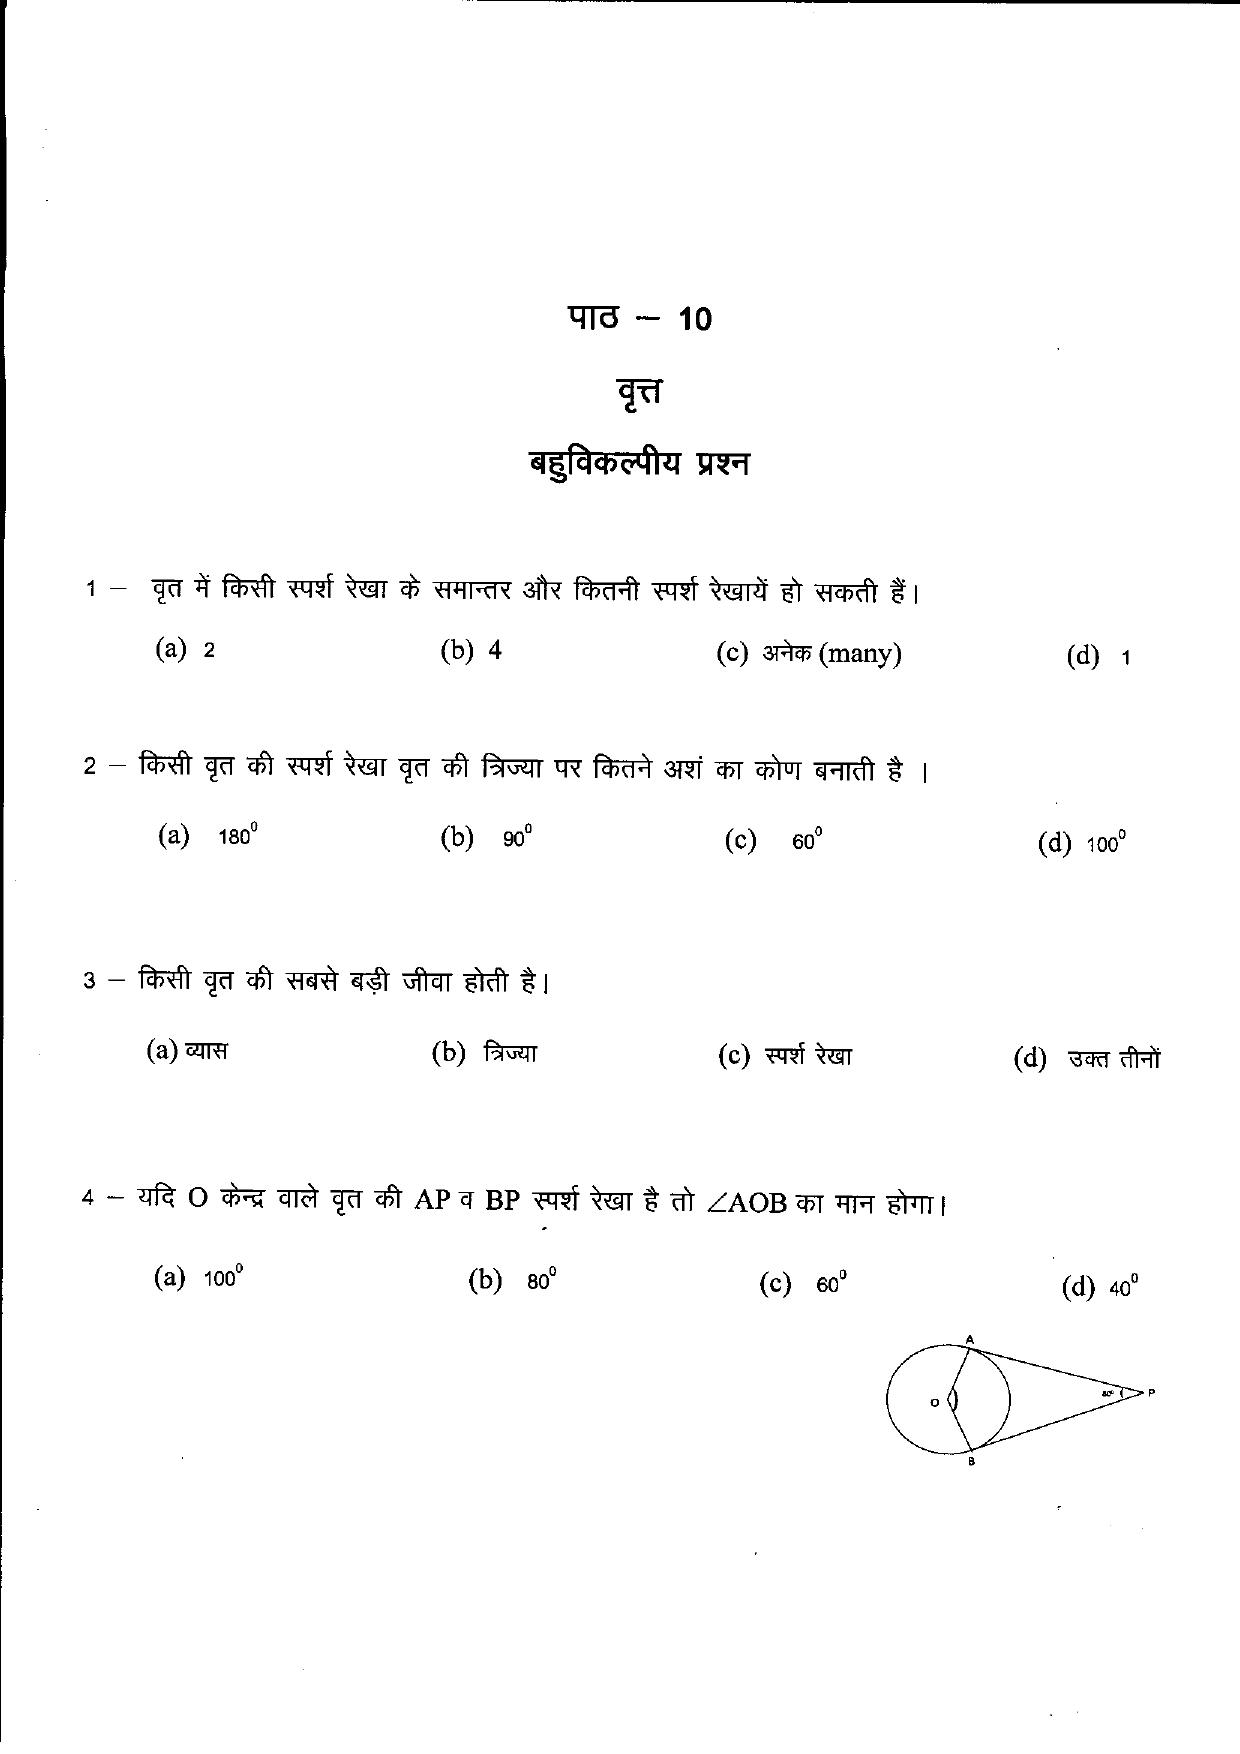 पाठ – 10
वृत्त
बहुविकल्पीय प्रश्न
1 – वृत में किसी स्पर्श रेखा के समान्तर और कितनी स्पर्श रेखायें हो सकती हैं।
(a) 2 (b) 4 (c) अनेक (many) (d) 1
2 – किसी वृत की स्पर्श रेखा वृत की त्रिज्या पर कितने अशं का कोण बनाती है ।
(a) 180⁰ (b) 90⁰ (c) 60⁰ (d) 100⁰
3 – किसी वृत की सबसे बड़ी जीवा होती है।
(a) व्यास (b) त्रिज्या (c) स्पर्श रेखा (d) उक्त तीनों
4 – यदि O केन्द्र वाले वृत की AP व BP स्पर्श रेखा है तो ∠AOB का मान होगा।
(a) 100⁰ (b) 80⁰ (c) 60⁰ (d) 40⁰
A
O P
B